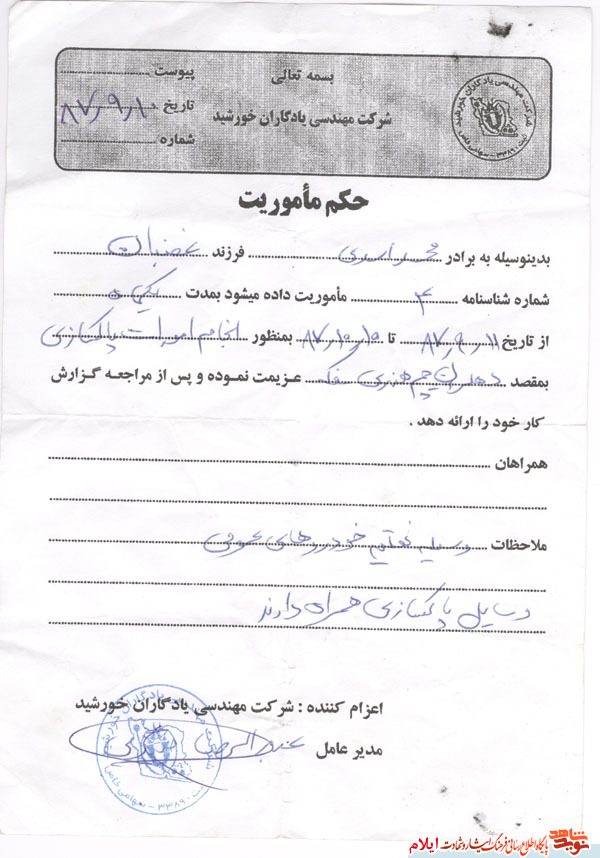 بسمه تعالی
شرکت مهندسی یادگاران خورشید
پیوست
تاریخ ۸۷٫۹٫۱۰
شماره
شرکت مهندسی یادگاران خورشید
ثبت ۳۳۸۹ - سهامی خاص
حکم مأموریت
بدینوسیله به برادر محمد اسدی فرزند غضبان
شماره شناسنامه ۴ مأموریت داده میشود بمدت یکماه
از تاریخ ۸۷٫۹٫۱۱ تا ۸۷٫۱۰٫۱۰ بمنظور انجام امورات پاکسازی
بمقصد دهلران چم هندی عزیمت نموده و پس از مراجعه گزارش
کار خود را ارائه دهد .
همراهان
ملاحظات وسیله نقلیه خودروهای عمومی
وسایل پاکسازی همراه دارند
اعزام کننده : شرکت مهندسی یادگاران خورشید
مدیر عامل
شرکت مهندسی یادگاران خورشید
ثبت ۳۳۸۹ - سهامی خاص
نوید شاهد
پایگاه اطلاع رسانی فرهنگ ایثار و شهادت ایلام